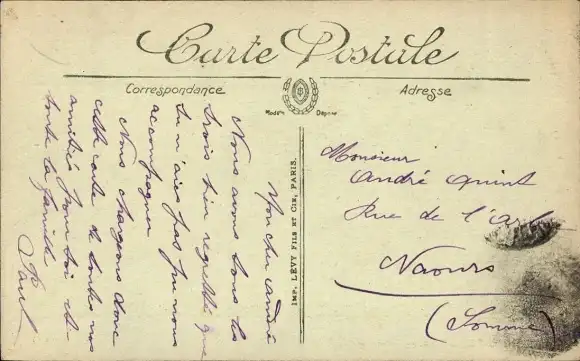 Carte Postale
Correspondance
Adresse
Modèle Déposé
IMP. LÉVY FILS ET CIE, PARIS.
Mon cher André
Nous avons tous les
trois bien regretté que
tu n'aies pas pu nous
accompagner
Nous chargeons donc
cette carte de toutes nos
amitiés pour toi et
toute la famille
Paul
Monsieur
André Quint
Rue de l'
Naours
(Somme)